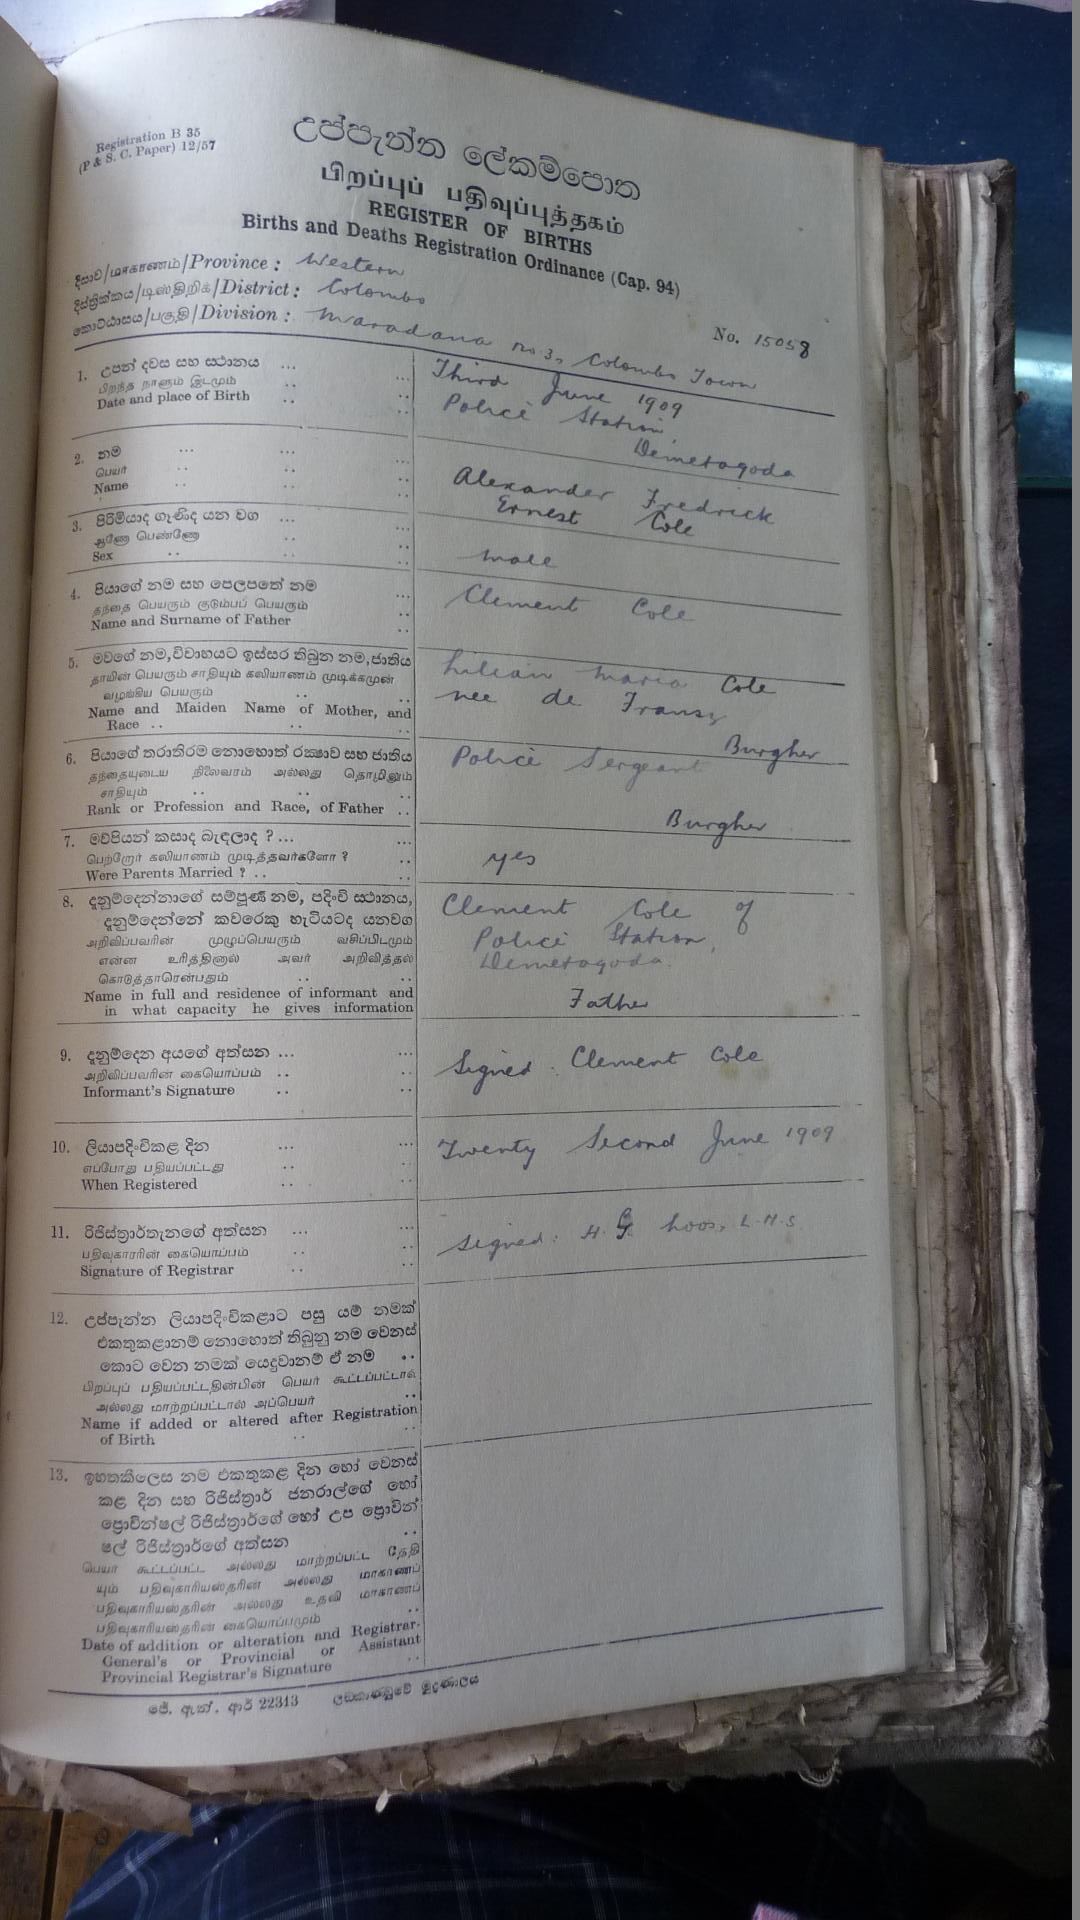 Registration B 35
(P & S. C. Paper) 12/57
උප්පැන්න ලේකම්පොත
பிறப்புப் பதிவுப்புத்தகம்
REGISTER OF BIRTHS
Births and Deaths Registration Ordinance (Cap. 94)
දිසාව/மாகாணம்/Province : Western
දිස්ත්‍රික්කය/டிஸ்திறிக்/District : Colombo
කොට්ඨාසය/பகுதி/Division : Maradana No 3, Colombo Town
No. 15058
1. උපන් දවස සහ ස්ථානය ... ...
பிறந்த நாளும் இடமும் .. ..
Date and place of Birth .. ..
Third June 1909
Police Station,
Demetagoda
2. නම ... ... ...
பெயர் .. .. ..
Name .. .. ..
Alexander Fredrick
Ernest Cole
3. පිරිමියාද ගැණිද යන වග ... ...
ஆணோ பெண்ணோ .. ..
Sex .. .. ..
male
4. පියාගේ නම සහ පෙලපතේ නම ...
தந்தை பெயரும் குடும்பப் பெயரும் ..
Name and Surname of Father ..
Clement Cole
5. මවගේ නම, විවාහයට ඉස්සර තිබුන නම, ජාතිය
தாயின் பெயரும் சாதியும் கலியாணம் முடிக்கமுன்
வழங்கிய பெயரும் .. ..
Name and Maiden Name of Mother, and
Race .. .. ..
Lilian Maria Cole
nee de Fransz
Burgher
6. පියාගේ තරාතිරම නොහොත් රක්ෂාව සහ ජාතිය
தந்தையுடைய நிலைவரம் அல்லது தொழிலும்
சாதியும் .. .. ..
Rank or Profession and Race, of Father ..
Police Sergeant
Burgher
7. මව්පියන් කසාද බැඳලාද ? ... ...
பெற்றோர் கலியாணம் முடித்தவர்களோ ? ..
Were Parents Married ? .. ..
yes
8. දැනුම්දෙන්නාගේ සම්පූර්ණ නම, පදිංචි ස්ථානය,
දැනුම්දෙන්නේ කවරෙකු හැටියටද යනවග
அறிவிப்பவரின் முழுப்பெயரும் வசிப்பிடமும்
என்ன உரித்தினால் அவர் அறிவித்தல்
கொடுத்தாரென்பதும் .. ..
Name in full and residence of informant and
in what capacity he gives information
Clement Cole of
Police Station,
Demetagoda.
Father
9. දැනුම්දෙන අයගේ අත්සන ... ...
அறிவிப்பவரின் கையொப்பம் .. ..
Informant's Signature .. ..
Signed : Clement Cole
10. ලියාපදිංචිකළ දින ... ...
எப்போது பதியப்பட்டது .. ..
When Registered .. ..
Twenty Second June 1909
11. රිජිස්ත්‍රාර්තැනගේ අත්සන ... ...
பதிவுகாரரின் கையொப்பம் .. ..
Signature of Registrar .. ..
Signed : H. G Loos, L.M.S
12. උප්පැන්න ලියාපදිංචිකළාට පසු යම් නමක්
එකතුකළානම් නොහොත් තිබුනු නම වෙනස්
කොට වෙන නමක් යෙදුවානම් ඒ නම ..
பிறப்புப் பதியப்பட்டதின்பின் பெயர் கூட்டப்பட்டால்
அல்லது மாற்றப்பட்டால் அப்பெயர் ..
Name if added or altered after Registration
of Birth .. ..
13. ඉහතකීලෙස නම එකතුකළ දින හෝ වෙනස්
කළ දින සහ රිජිස්ත්‍රාර් ජනරාල්ගේ හෝ
ප්‍රොවින්ෂල් රිජිස්ත්‍රාර්ගේ හෝ උප ප්‍රොවින්
ෂල් රිජිස්ත්‍රාර්ගේ අත්සන ..
பெயர் கூட்டப்பட்ட அல்லது மாற்றப்பட்ட தேதி
யும் பதிவுகாரியஸ்தரின் அல்லது மாகாணப்
பதிவுகாரியஸ்தரின் அல்லது உதவி மாகாணப்
பதிவுகாரியஸ்தரின் கையொப்பமும் ..
Date of addition or alteration and Registrar-
General's or Provincial or Assistant
Provincial Registrar's Signature ..
ජේ. ඇන්. ආර් 22313 ලංකාණ්ඩුවේ මුද්‍රණාලය